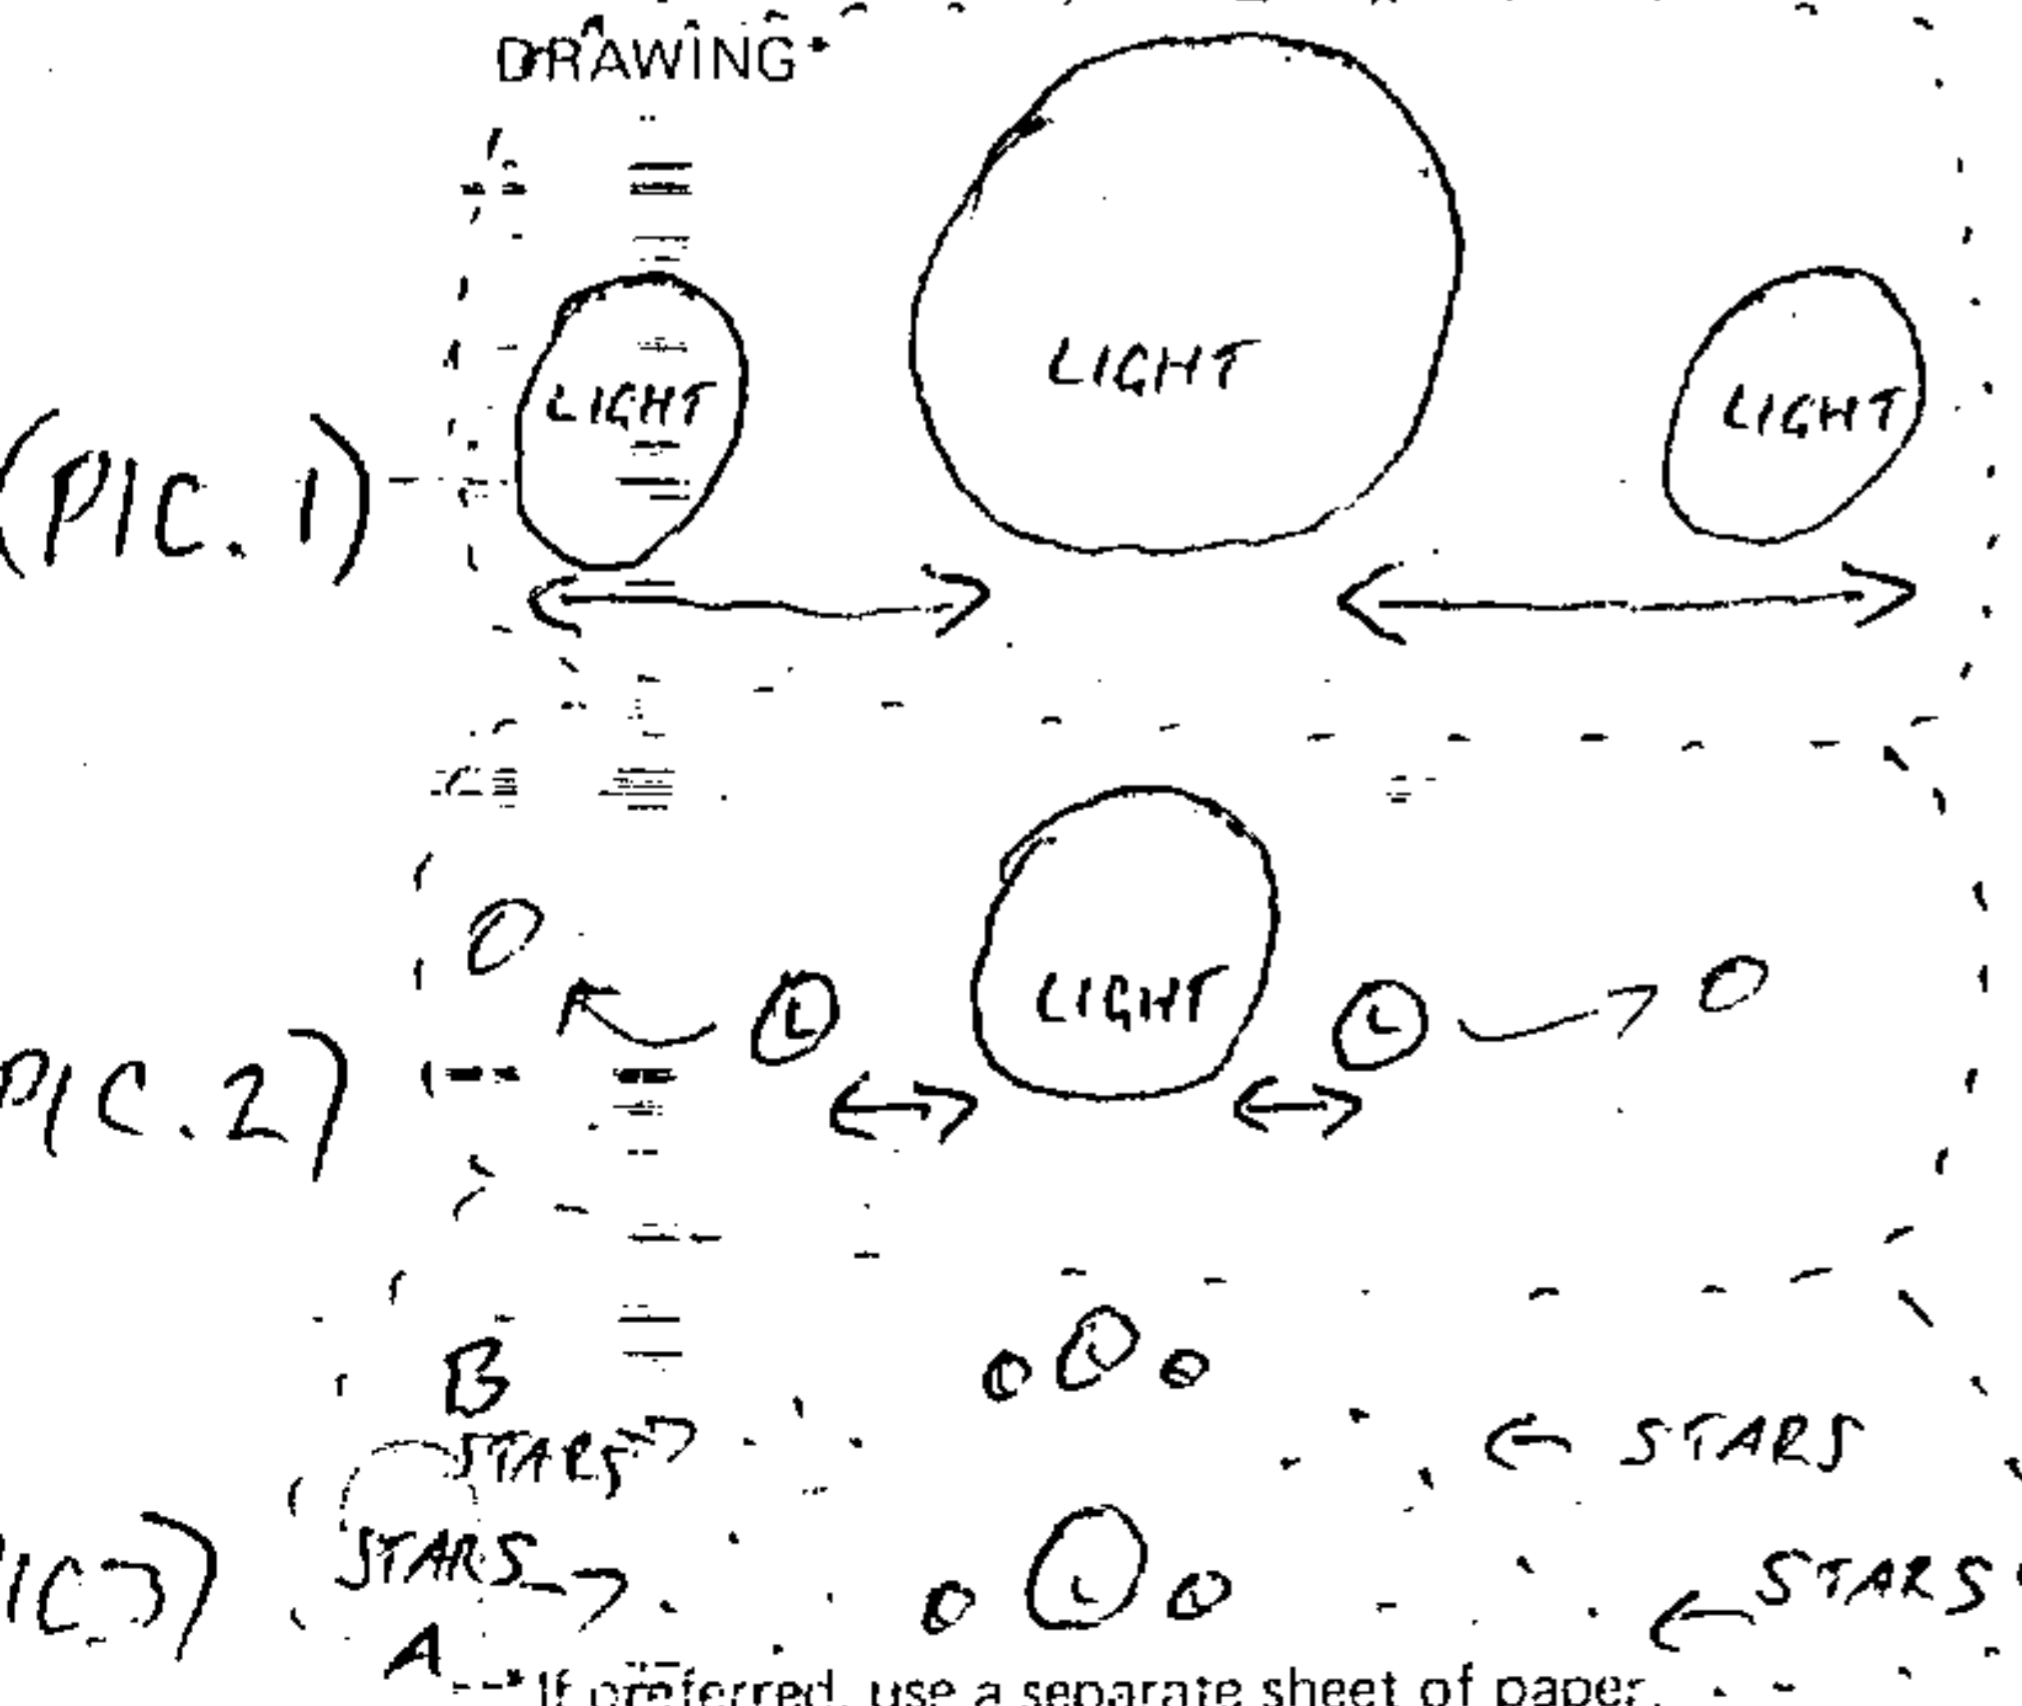 DRAWING*
LIGHT
LIGHT
LIGHT
(PIC. 1)
LIGHT
L
L
PIC. 2)
B
L
STARS
STARS
STARS
L
STARS
A
*If preferred, use a separate sheet of paper.